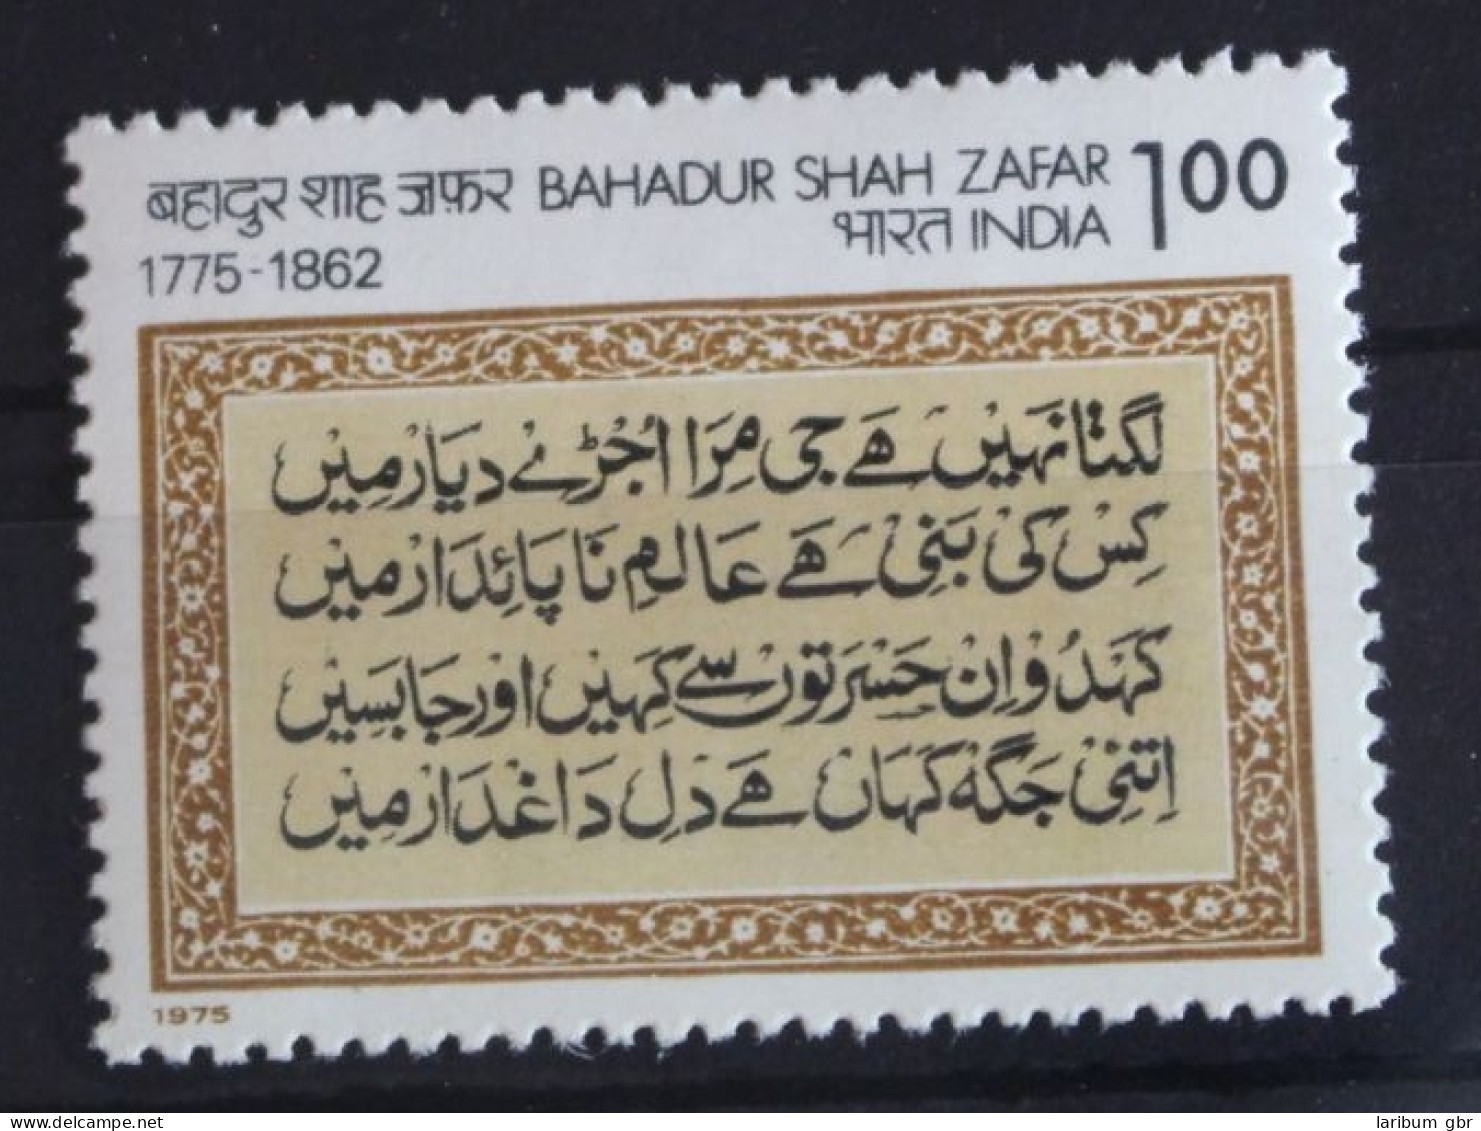 बहादुर शाह ज़फ़र BAHADUR SHAH ZAFAR 100
1775-1862 भारत INDIA
لگتا نہیں ہے جی مِرا اُجڑے دیار میں
کِس کی بَنی ہے عالمِ نا پائدار میں
کہدو اِن حسرتوں سے کہیں اور جا بسیں
اِتنی جگہ کہاں ہے دلِ داغدار میں
1975
laribum gbr